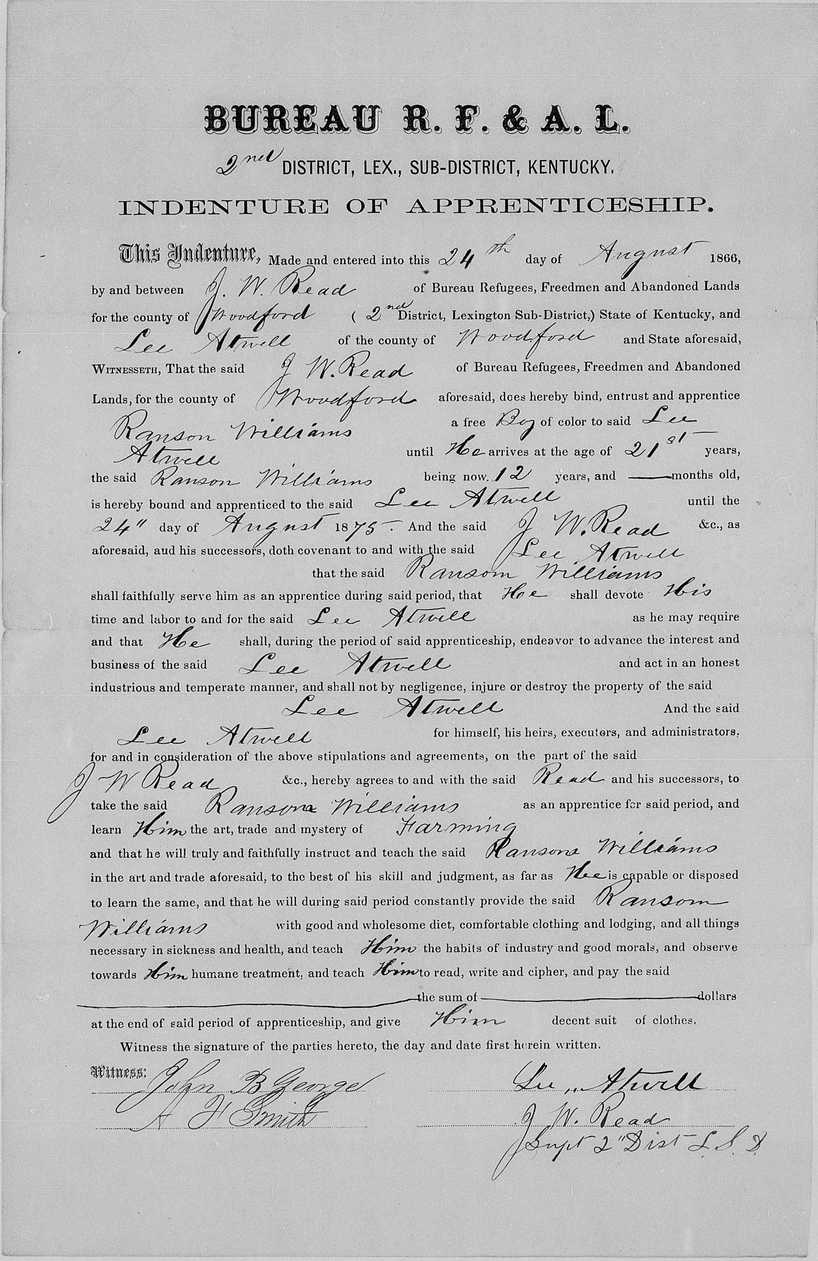 BUREAU R. F. & A. L.
2nd DISTRICT, LEX., SUB-DISTRICT, KENTUCKY.
INDENTURE OF APPRENTICESHIP.
This Indenture, Made and entered into this 24th day of August 1866,
by and between J. W. Read of Bureau Refugees, Freedmen and Abandoned Lands
for the county of Woodford ( 2nd District, Lexington Sub-District,) State of Kentucky, and
Lee Atwell of the county of Woodford and State aforesaid,
WITNESSETH, That the said J W. Read of Bureau Refugees, Freedmen and Abandoned
Lands, for the county of Woodford aforesaid, does hereby bind, entrust and apprentice
Ranson Williams a free Boy of color to said Lee
Atwell until He arrives at the age of 21st years,
the said Ranson Williams being now 12 years, and —— months old,
is hereby bound and apprenticed to the said Lee Atwell until the
24" day of August 1875. And the said J W. Read &c., as
aforesaid, aud his successors, doth covenant to and with the said Lee Atwell
that the said Ransom Williams
shall faithfully serve him as an apprentice during said period, that He shall devote His
time and labor to and for the said Lee Atwell as he may require
and that He shall, during the period of said apprenticeship, endeavor to advance the interest and
business of the said Lee Atwell and act in an honest
industrious and temperate manner, and shall not by negligence, injure or destroy the property of the said
Lee Atwell And the said
Lee Atwell for himself, his heirs, executors, and administrators,
for and in consideration of the above stipulations and agreements, on the part of the said
J W Read &c., hereby agrees to and with the said Read and his successors, to
take the said Ransom Williams as an apprentice for said period, and
learn Him the art, trade and mystery of Farming
and that he will truly and faithfully instruct and teach the said Ransom Williams
in the art and trade aforesaid, to the best of his skill and judgment, as far as Hee is capable or disposed
to learn the same, and that he will during said period constantly provide the said Ransom
Williams with good and wholesome diet, comfortable clothing and lodging, and all things
necessary in sickness and health, and teach Him the habits of industry and good morals, and observe
towards Him humane treatment, and teach Him to read, write and cipher, and pay the said
—— the sum of —— dollars
at the end of said period of apprenticeship, and give Him decent suit of clothes.
Witness the signature of the parties hereto, the day and date first herein written.
Witness: John B George Lee Atwell
A H Smith J W. Read
Supt 2" Dist L. S. D.